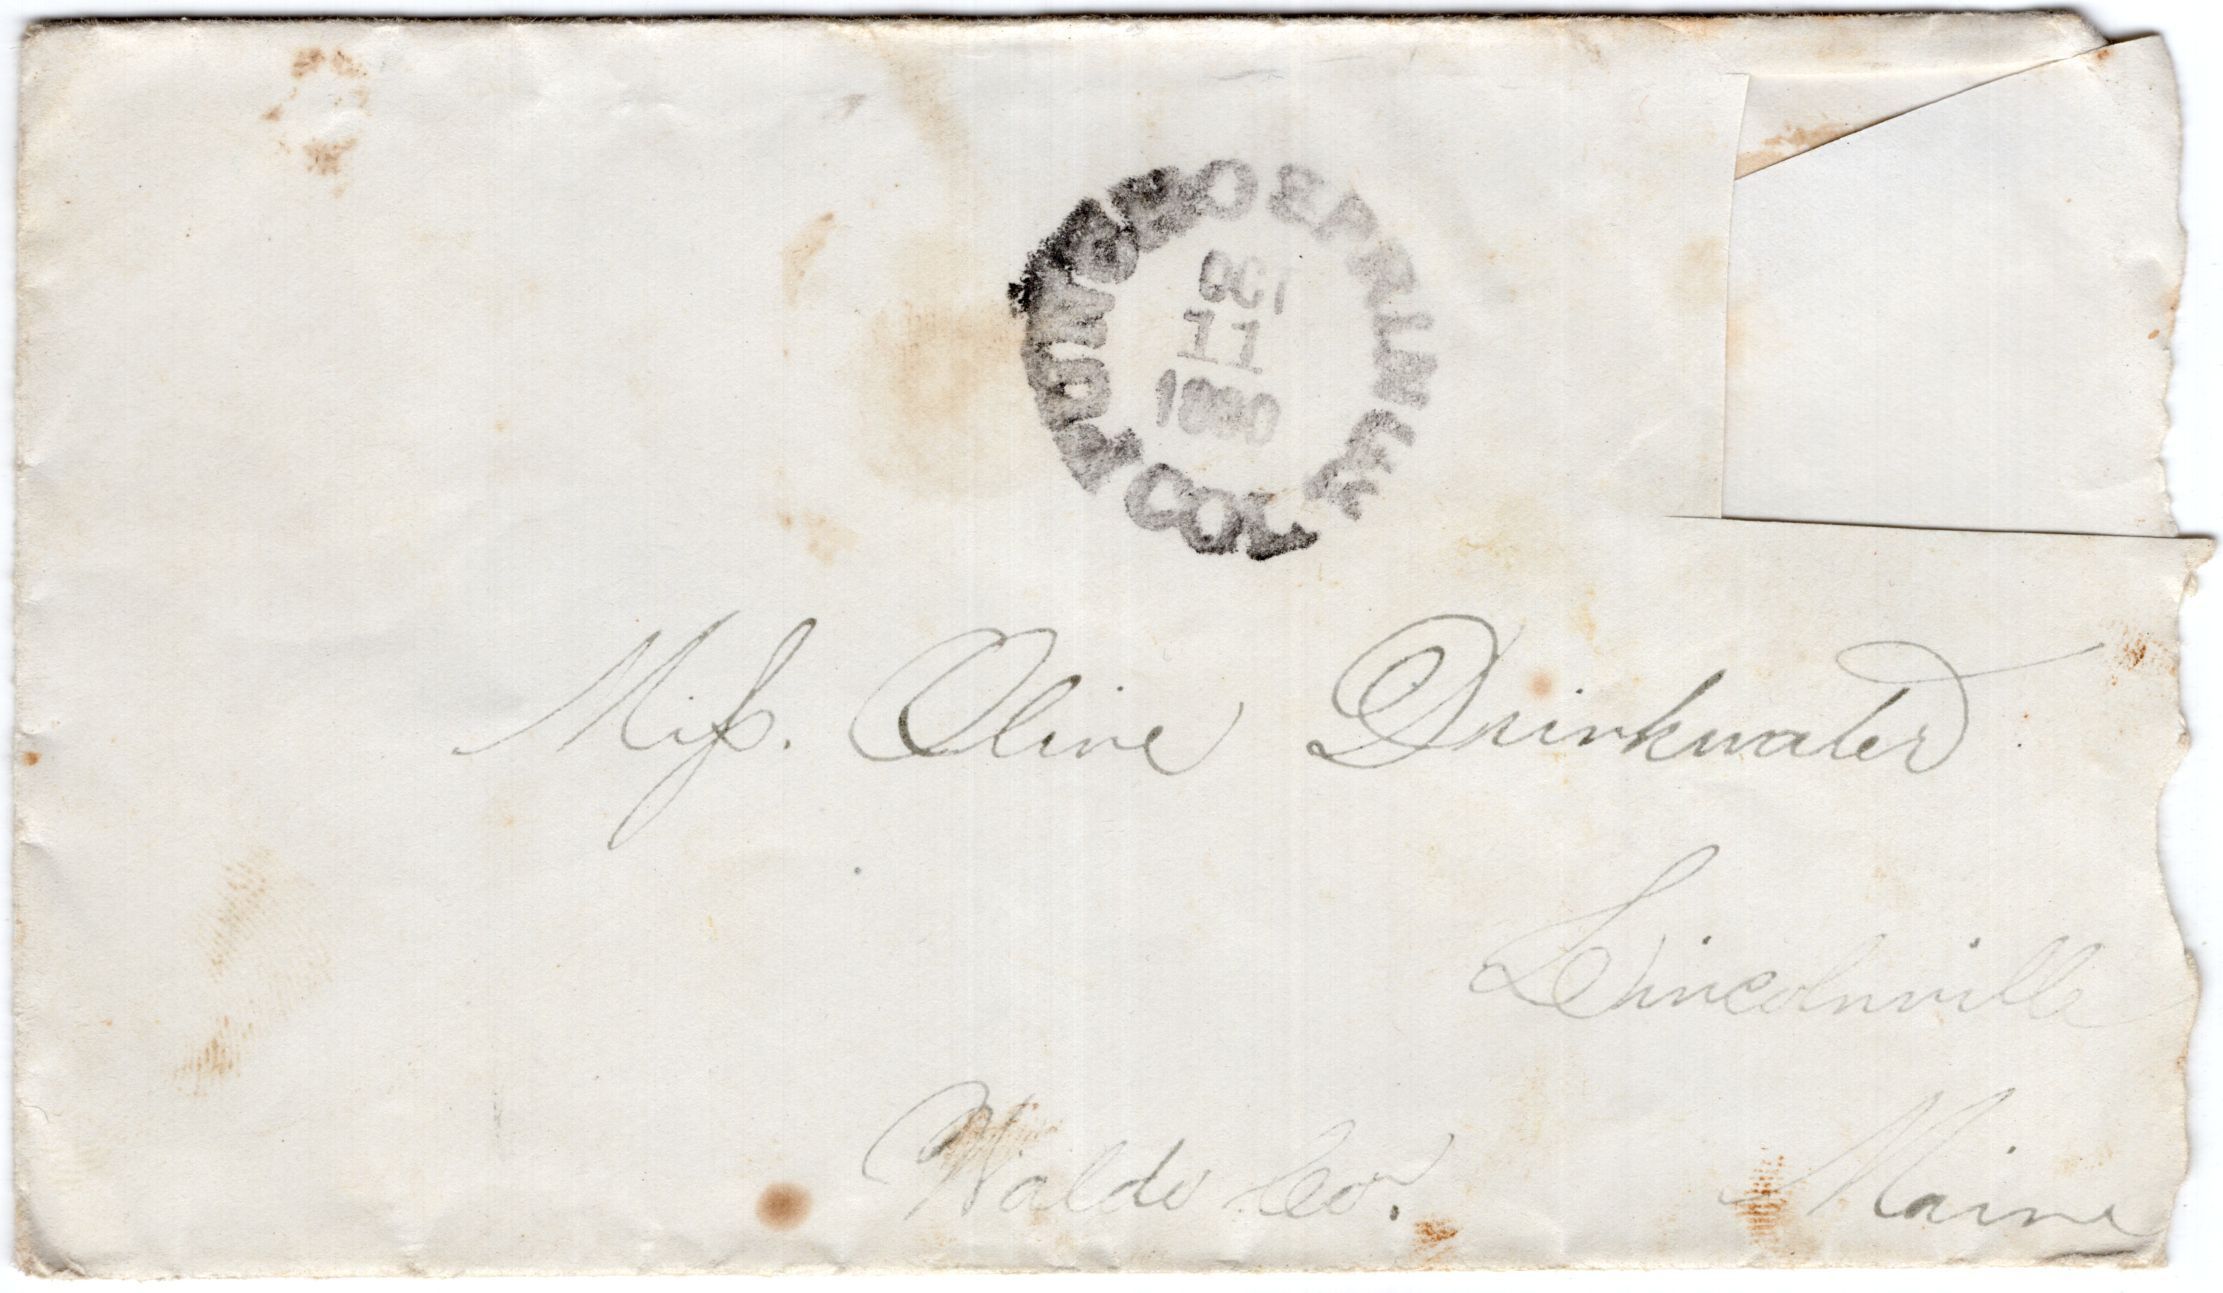 PONCHO SPRINGS COL
OCT
11
1880
Miss. Olive Drinkwater
Lincolnville
Waldo Co. Maine